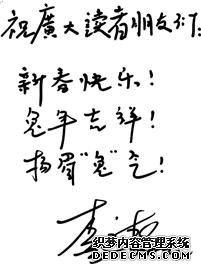 祝廣大读者朋友们:
新春快乐!
兔年吉祥!
扬眉"兔"气!
织梦内容管理系统
DEDECMS.COM